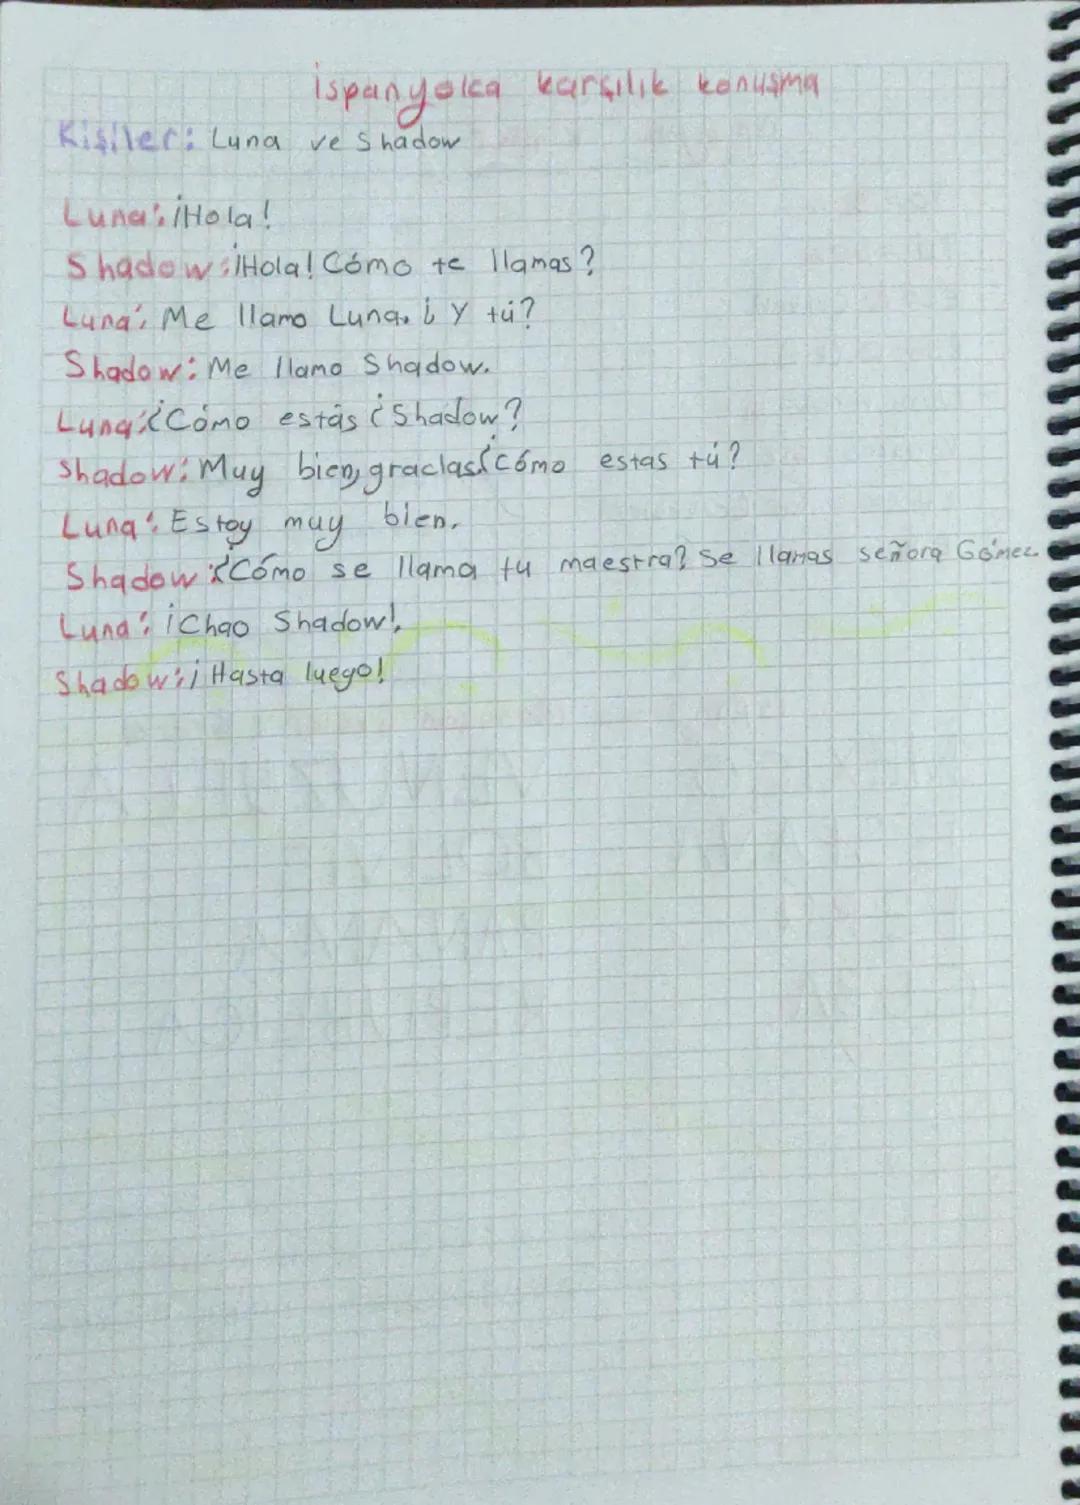 ispanyolca karşılık konuşma
Kişiler: Luna ve Shadow
Luna: ¡Hola!
Shadow: ¡Hola! Cómo te llamas?
Luna: Me llamo Luna. ¿ Y tú?
Shadow: Me llamo Shadow.
Luna: ¿Cómo estás ¿Shadow?
Shadow: Muy bien, gracias ¿cómo estas tú?
Luna: Estoy muy bien.
Shadow: ¿Cómo se llama tu maestra? Se llamas señora Gómez.
Luna: ¡Chao Shadow!.
Shadow: ¡Hasta luego!